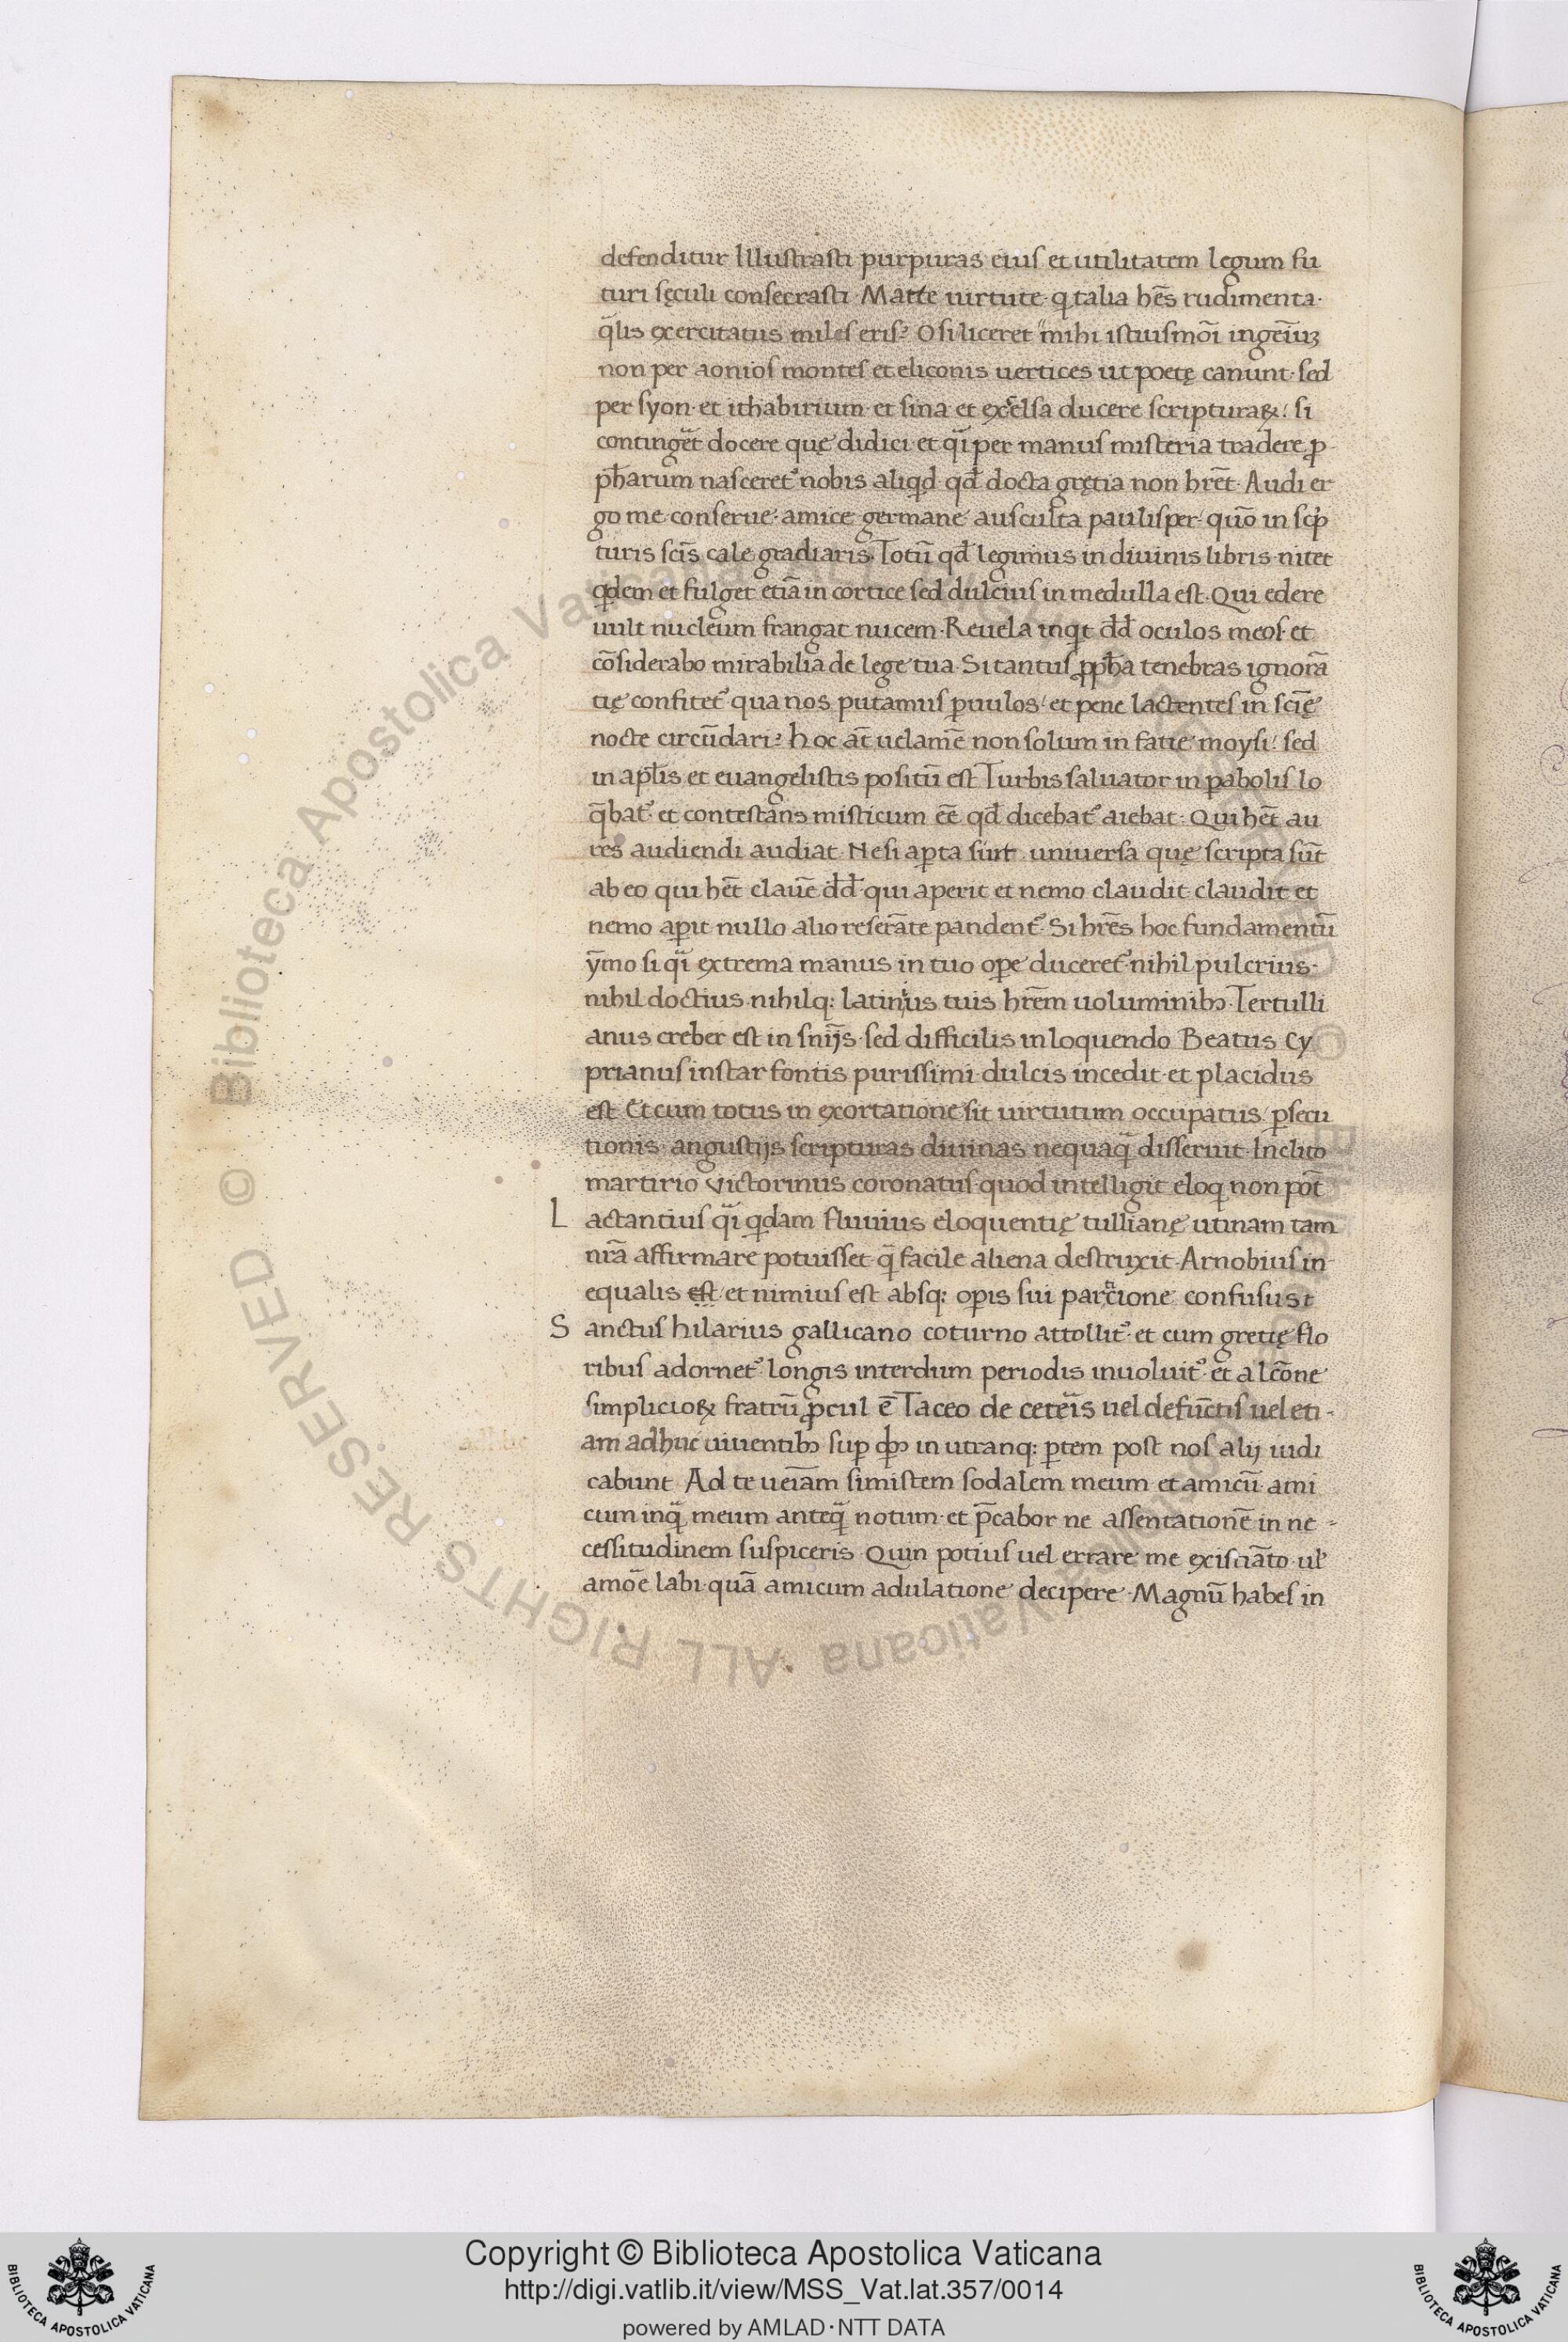 defenditur Illustrasti purpuras eius et utilitatem legum fu
turi sęculi consecrasti. Matte uirtute. q talia hēs rudimenta.
q̄lis exercitatus miles eris? O si liceret mihi istiusmōi ingeīuꝫ
non per aonios montes et eliconis uertices ut poetę canunt. sed
per syon. et ithabirium. et sina et excelsa ducere scripturaꝝ. si
contingēt docere quę didici. et qͣi per manus misteria tradere ꝓ
ph̄arum nasceret᷑ nobis aliqd qd̄ docta gręcia non hrēt. Audi er
go me conserue. amice germane ausculta paulisper. quō in scͥp
turis scīs cale gradiaris. Totū qd̄ legimus in diuinis libris. nitet
qͥdem et fulget etiā in cortice sed dulcius in medulla est. Qui edere
uult nucleum frangat nucem. Reuela inqͥt dd̄ oculos meos. et
cōsiderabo mirabilia de lege tua. Si tantus ꝓph̄a tenebras ignorā
tię confitet᷑ qua nos putamus ꝑuulos. et pene lactentes in scīę
nocte circūdari? hoc āt uelamē non solum in fatie moysi. sed
in apl̄is et euangelistis positū est Turbis saluator in ꝑabolis lo
q̄bat᷑. et contestans misticum eē qd̄ dicebat᷑ aiebat. Qui hēt au
res audiendi audiat. Nesi aꝑta sūnt uniuersa quę scripta sūt
ab eo qui hēt clauē dd̄ qui aperit et nemo claudit claudit et
nemo aꝑit nullo alio reserāte pandent᷑. Si hrēs hoc fundamentū
ȳmo si qͣi extrema manus in tuo oꝑe duceret᷑ nihil pulcrius.
nihil doctius. nihilq; latinius tuis hrēm uoluminibꝫ. Tertulli
anus creber est in snīj̄s. sed difficilis in loquendo Beatus Cy
prianus instar fontis purissimi dulcis incedit. et placidus
est. Et cum totus in exortatione sit uirtutum occupatus ꝑsecu
tionis angustijs scripturas diuinas nequaqͣ disseruit. Inclito
martirio victorinus coronatus quod intelligit eloqͥ non pōt
Lactantius qͣi qͥdam fluuius eloquentię tullianę utinam tam
nr̄a affirmare potuisset. qͣ facile aliena destruxit. Arnobius in
equalis est. et nimius est absq; oꝑis sui parᵃcione confusus t
Sanctus hilarius gallicano coturno attollit᷑. et cum gretię flo
ribus adornet᷑ longis interdum periodis inuoluit᷑. et a lc̄one
simplicioꝝ fratrū ꝓcul ē Taceo de ceteīs uel defūctis uel eti-
am adhuc uiuentibꝫ suꝑ qͥbꝫ in utranq; ꝑtem post nos alij iudi
cabunt Ad te ueīam simistem sodalem meum et amicū. ami
cum inqͣ meum anteqͣ notum. et p̄cabor ne assentationē in ne-
cessitudinem suspiceris. Quin potius uel errare me existiāto ul̄
amoē labi. quā amicum adulatione decipere. Magnū habes in
© Biblioteca Apostolica Vaticana ALL RIGHTS RESERVED
Copyright © Biblioteca Apostolica Vaticana
http://digi.vatlib.it/view/MSS_Vat.lat.357/0014
powered by AMLAD·NTT DATA
BIBLIOTECA APOSTOLICA VATICANA
BIBLIOTECA APOSTOLICA VATICANA